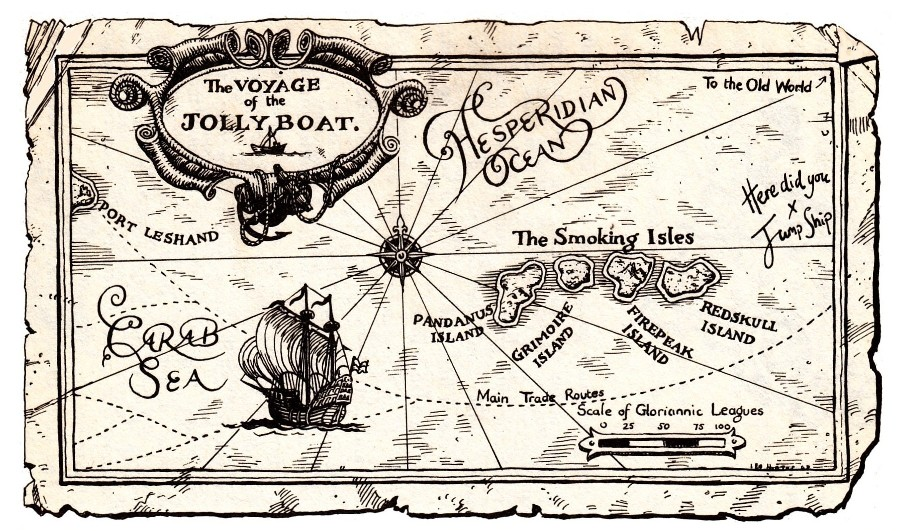 The VOYAGE
of the
JOLLY BOAT.
HESPERIDIAN
OCEAN
To the Old World
Here did you
x
Jump Ship
PORT LESHAND
The Smoking Isles
PANDANUS
ISLAND
GRIMOIRE
ISLAND
FIREPEAK
ISLAND
REDSKULL
ISLAND
CARAB
SEA
Main Trade Routes
Scale of Gloriannic Leagues
0 25 50 75 100